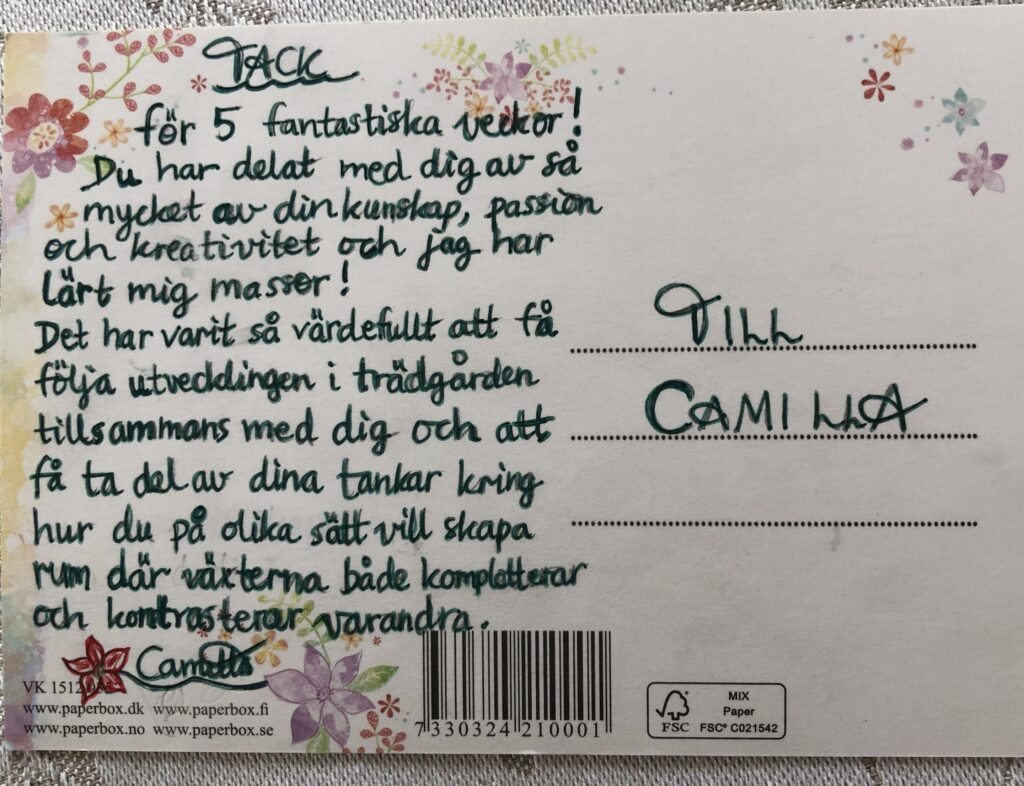 TACK
för 5 fantastiska veckor!
Du har delat med dig av så
mycket av din kunskap, passion
och kreativitet och jag har
lärt mig massor!
Det har varit så värdefullt att få
följa utvecklingen i trädgården
tillsammans med dig och att
få ta del av dina tankar kring
hur du på olika sätt vill skapa
rum där växterna både kompletterar
och kontrasterar varandra.
Camilla
VK 1512
www.paperbox.dk www.paperbox.fi
www.paperbox.no www.paperbox.se
7 330324 210001
TILL
CAMILLA
FSC
MIX
Paper
FSC® C021542